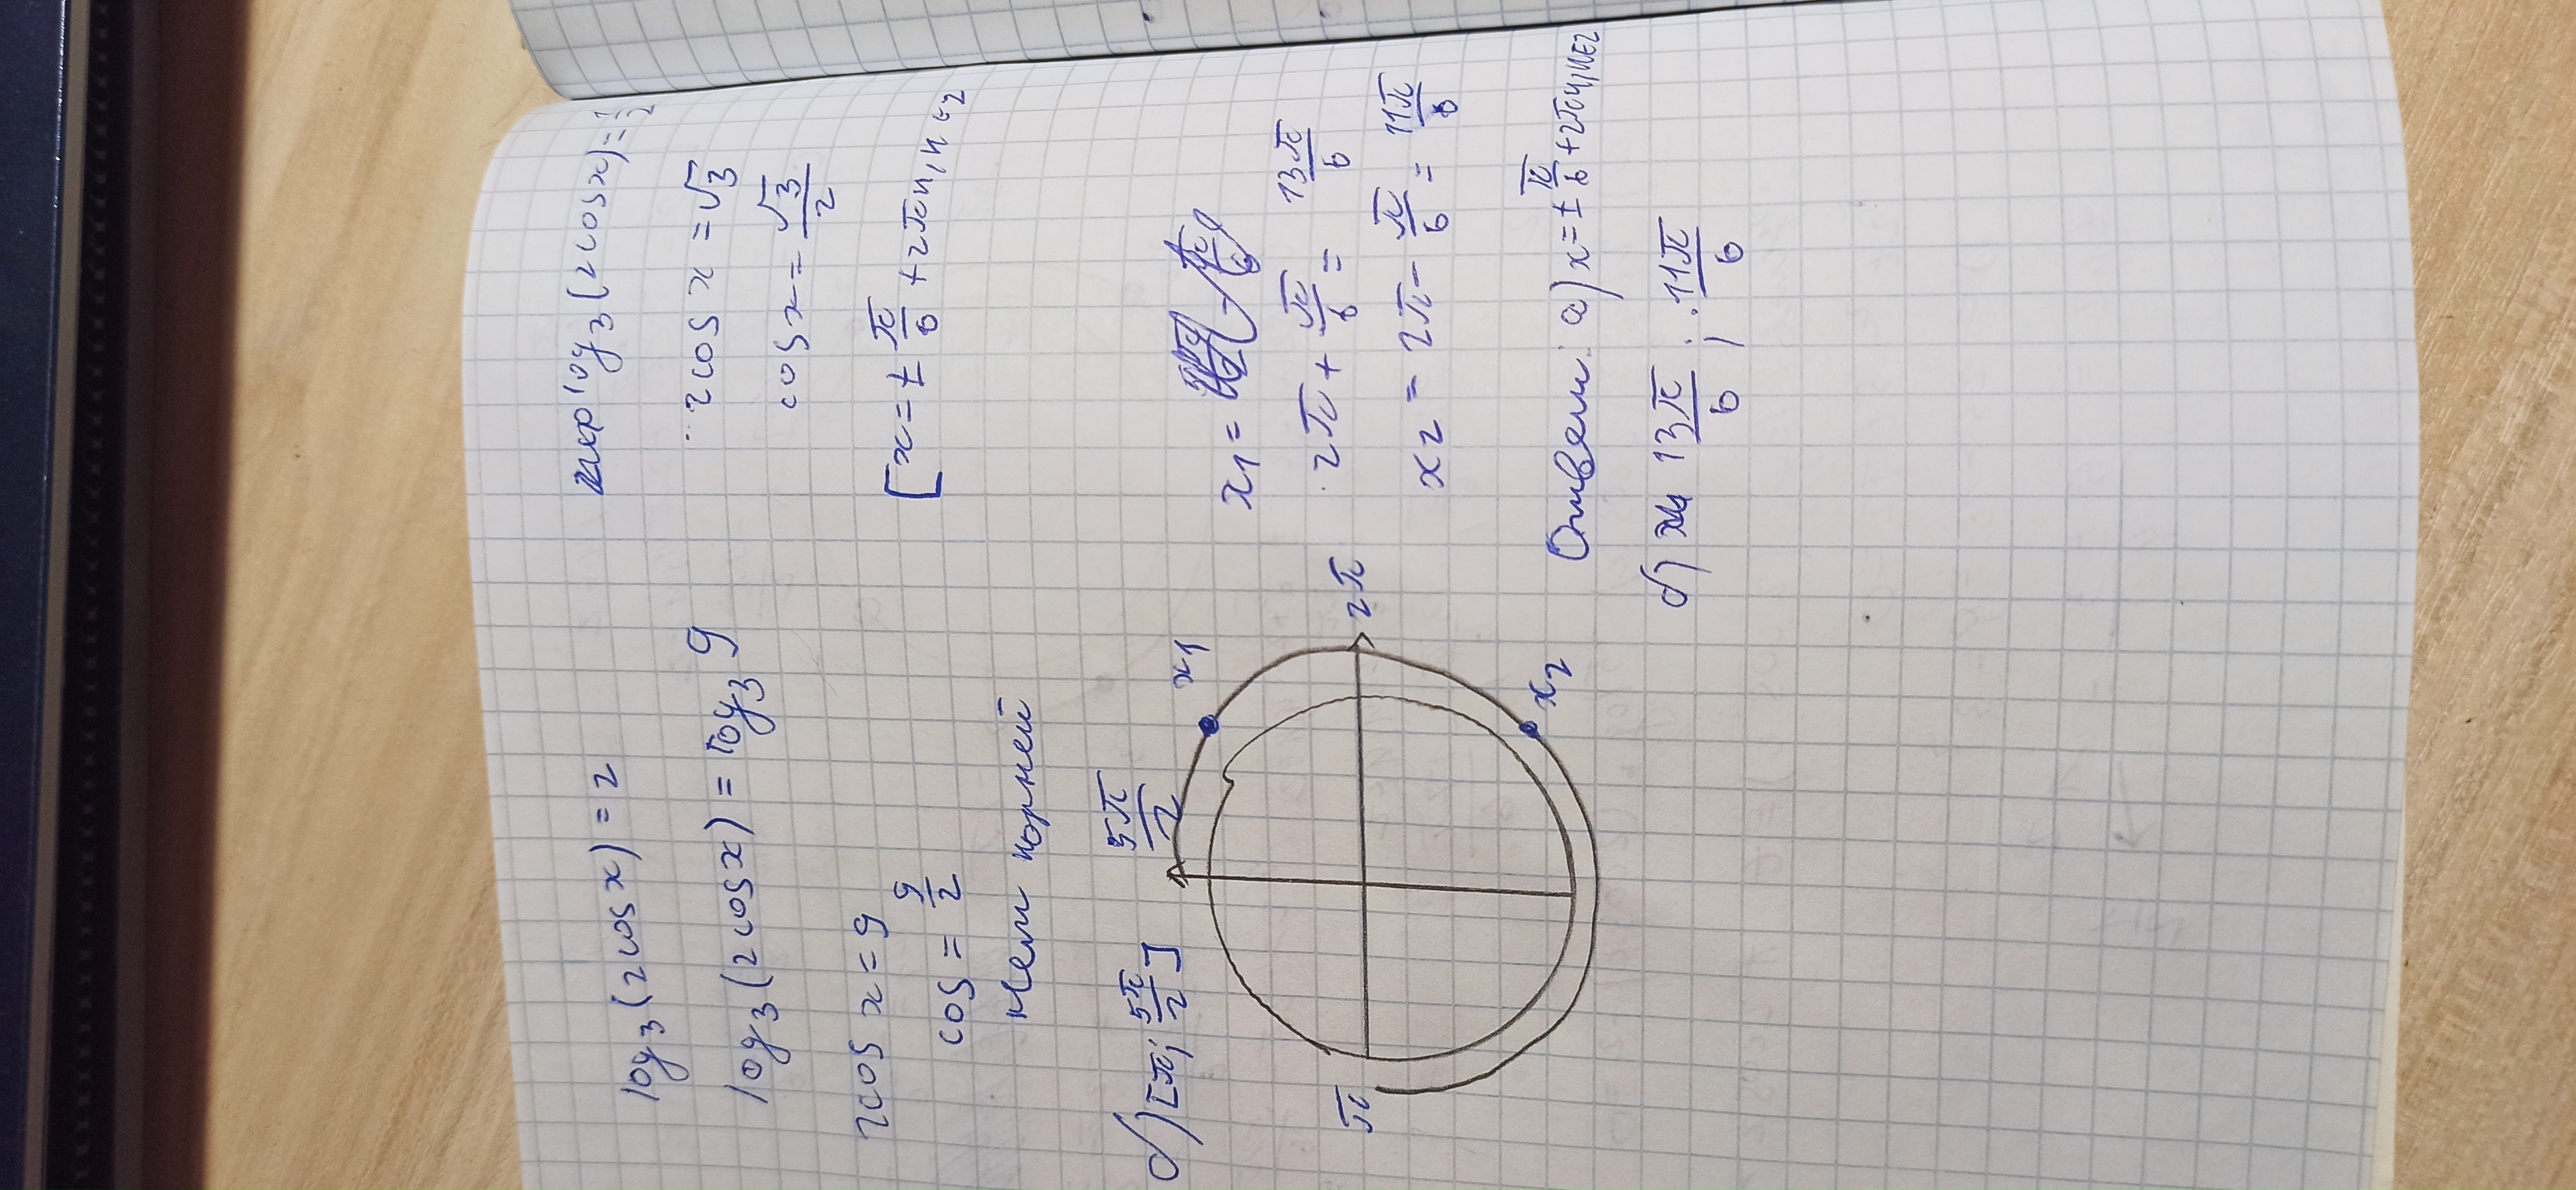 log₃(2cosx) = 2
log₃(2cosx) = log₃ 9
2cos x = 9
cos = 9/2
Нет корней
log₃(2cosx) = 1/2
2cos x = √3
cos x = √3/2
[x = ± π/6 + 2πn, n ∈ Z
б) [π; 5π/2]
5π/2
x₁
π
2π
x₂
x₁ =
2π + π/6 = 13π/6
x₂ = 2π - π/6 = 11π/6
Ответ: а) x = ± π/6 + 2πn, n ∈ Z
б) 13π/6 ; 11π/6